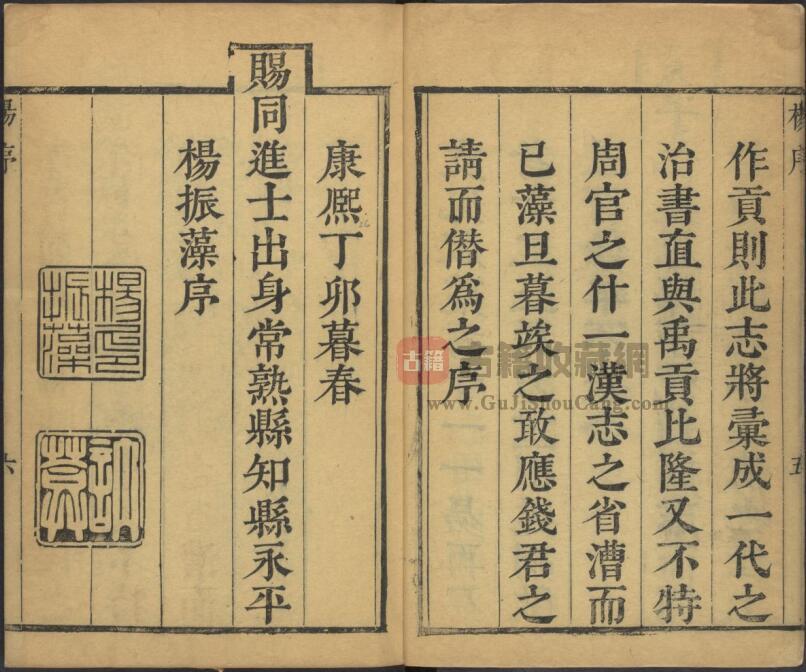 楊序
五
作貢則此志將彙成一代之
治書直與禹貢比隆又不特
周官之什一漢志之省漕而
已藻旦暮竢之敢應錢君之
請而僭爲之序
康熈丁卯暮春
賜同進士出身常熟縣知縣永平
楊振藻序
楊序
六
楊印振藻
古籍
古籍收藏網
www.GuJiShouCang.com